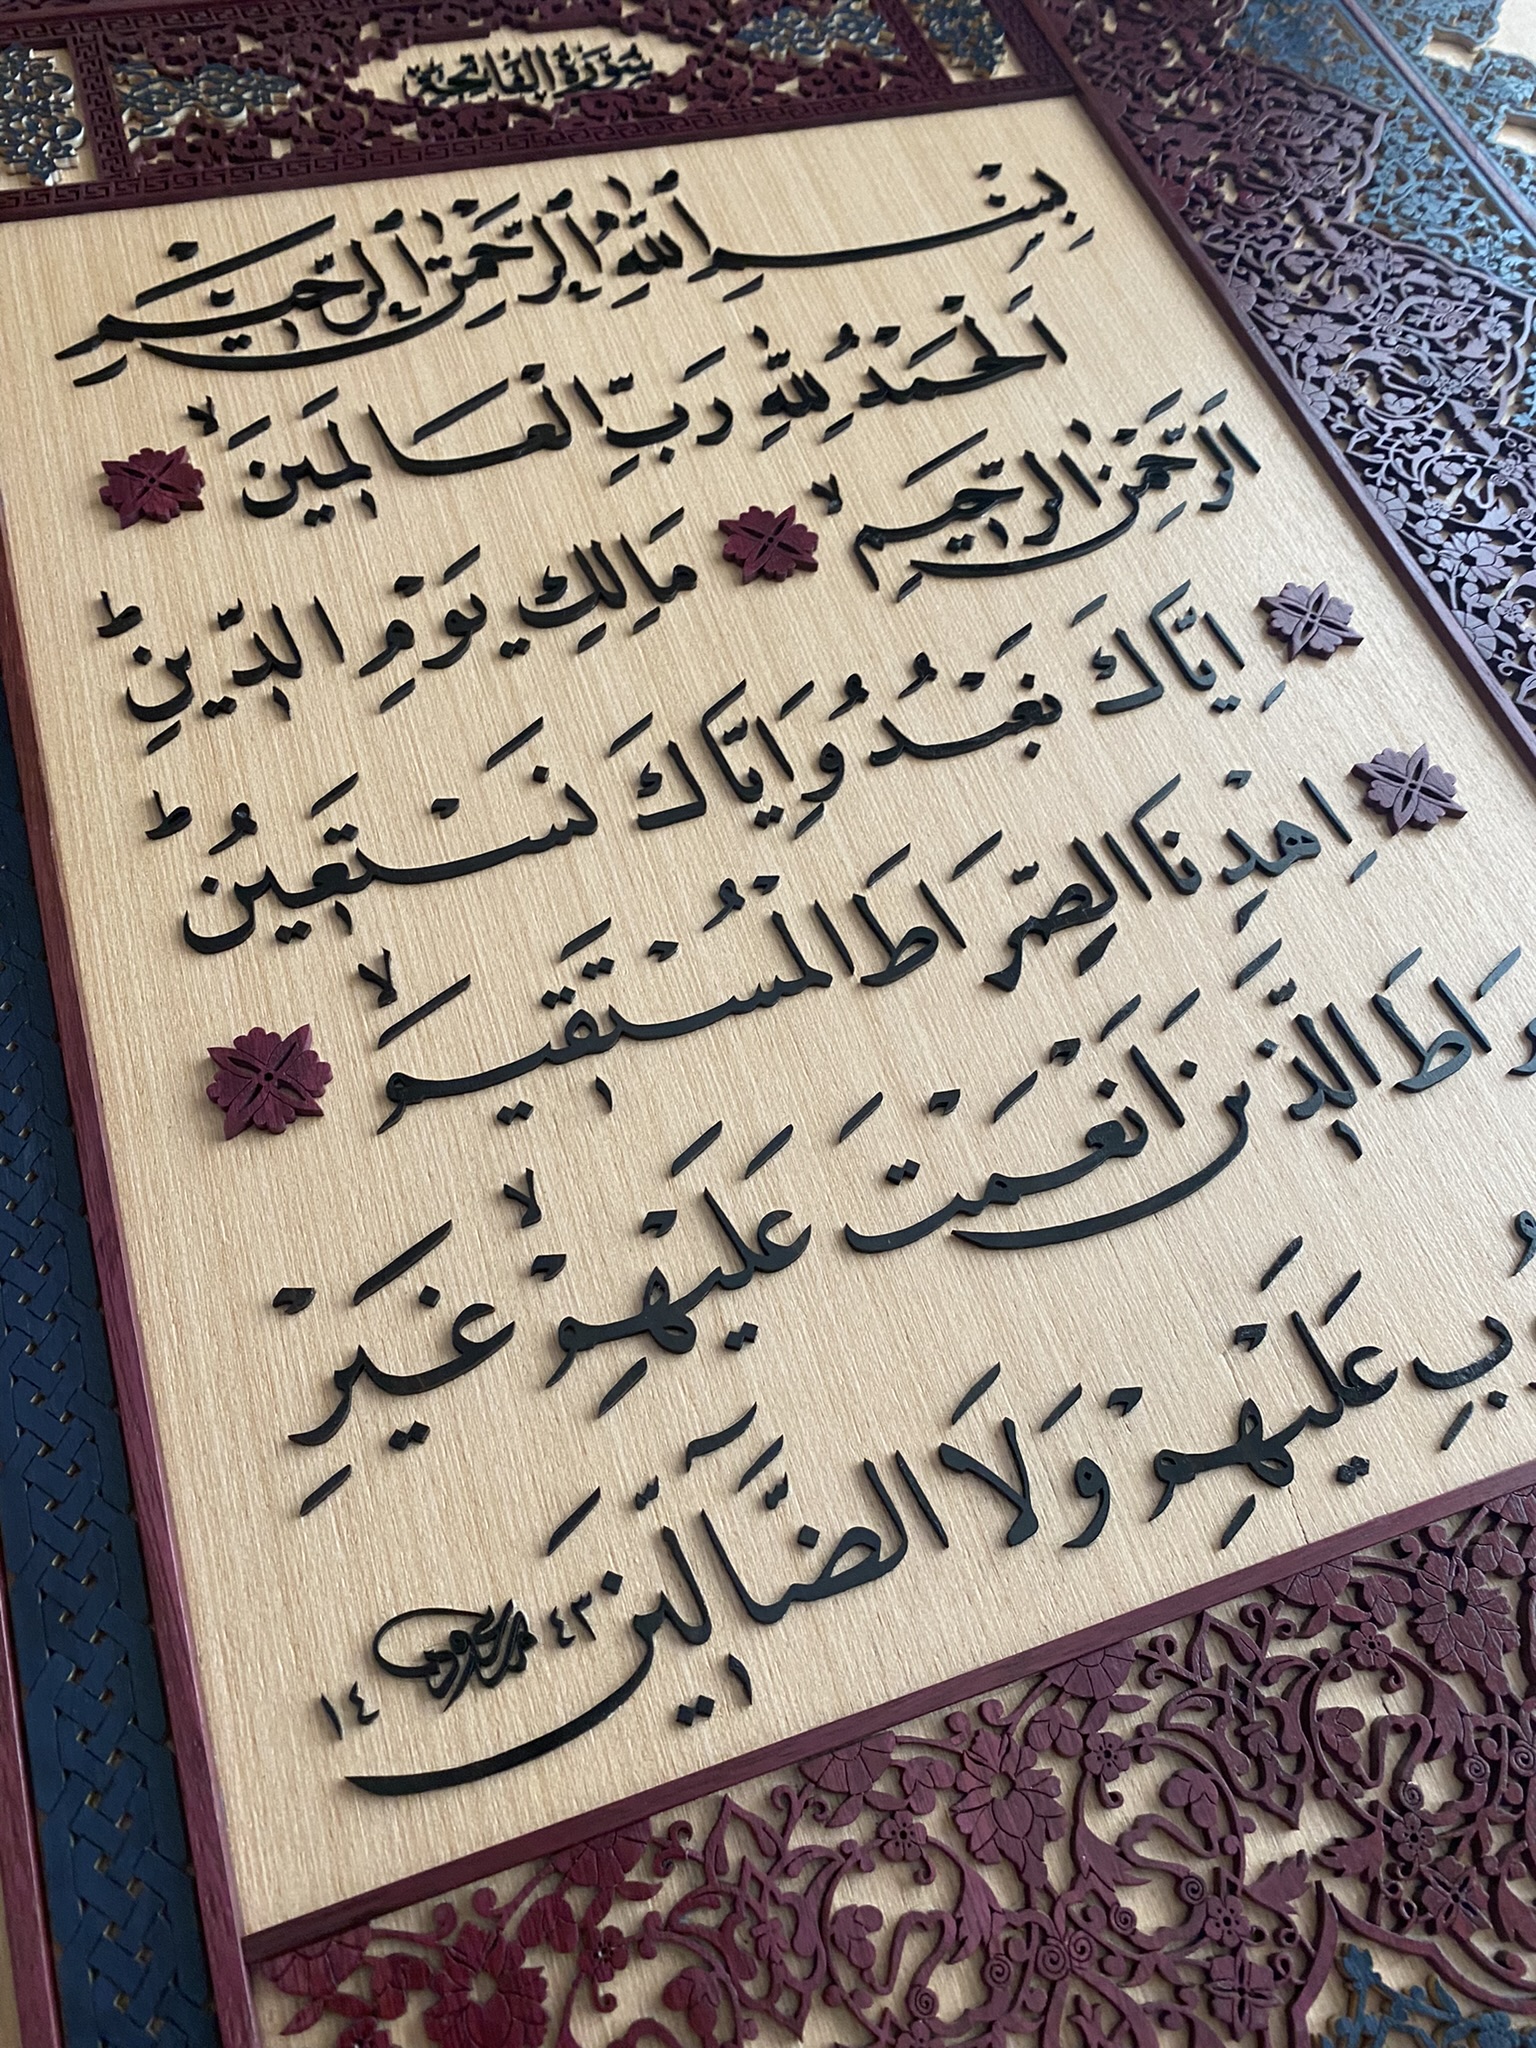 سُوْرَةُ الْفَاتِحَةِ
بِسْمِ ٱللَّهِ ٱلرَّحْمٰنِ ٱلرَّحٖيمِ
اَلْحَمْدُ لِلّٰهِ رَبِّ الْعَالَمٖينَ ۙ
اَلرَّحْمٰنِ الرَّحٖيمِ ۙ مَالِكِ يَوْمِ الدّٖينِ ؕ
اِيَّاكَ نَعْبُدُ وَاِيَّاكَ نَسْتَعٖينُ ؕ
اِهْدِنَا الصِّرَاطَ الْمُسْتَقٖيمَ ۙ
رَاطَ الَّذٖينَ اَنْعَمْتَ عَلَيْهِمْ ۙ غَيْرِ
بِ عَلَيْهِمْ وَلَا الضَّٓالّٖينَ
١٤ ٤٣